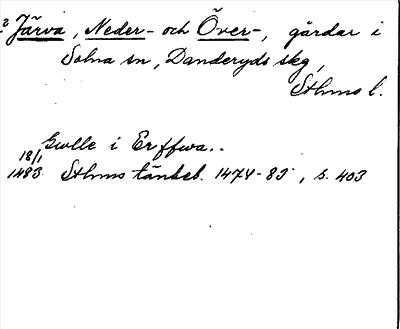 ? Järva, Neder- och Över-, gårdar i
Solna sn, Danderyds skg,
Sthms l.
Gwlle i Erffwa..
18/1
1483 Sthms tänkeb. 1474-83, s. 403